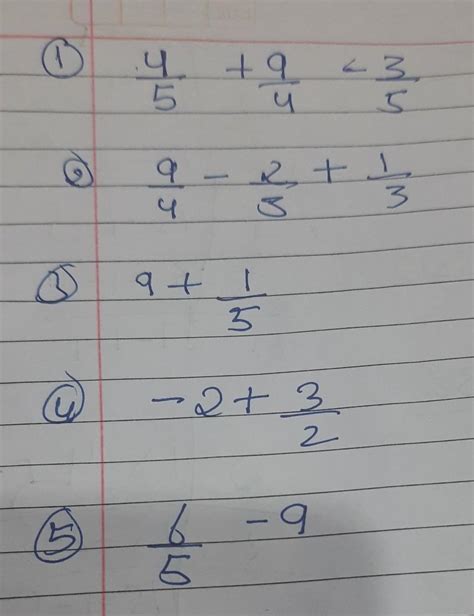 ① 4/5 + 9/4 - 3/5
② 9/4 - 2/3 + 1/3
③ 9 + 1/5
④ -2 + 3/2
⑤ 6/5 - 9